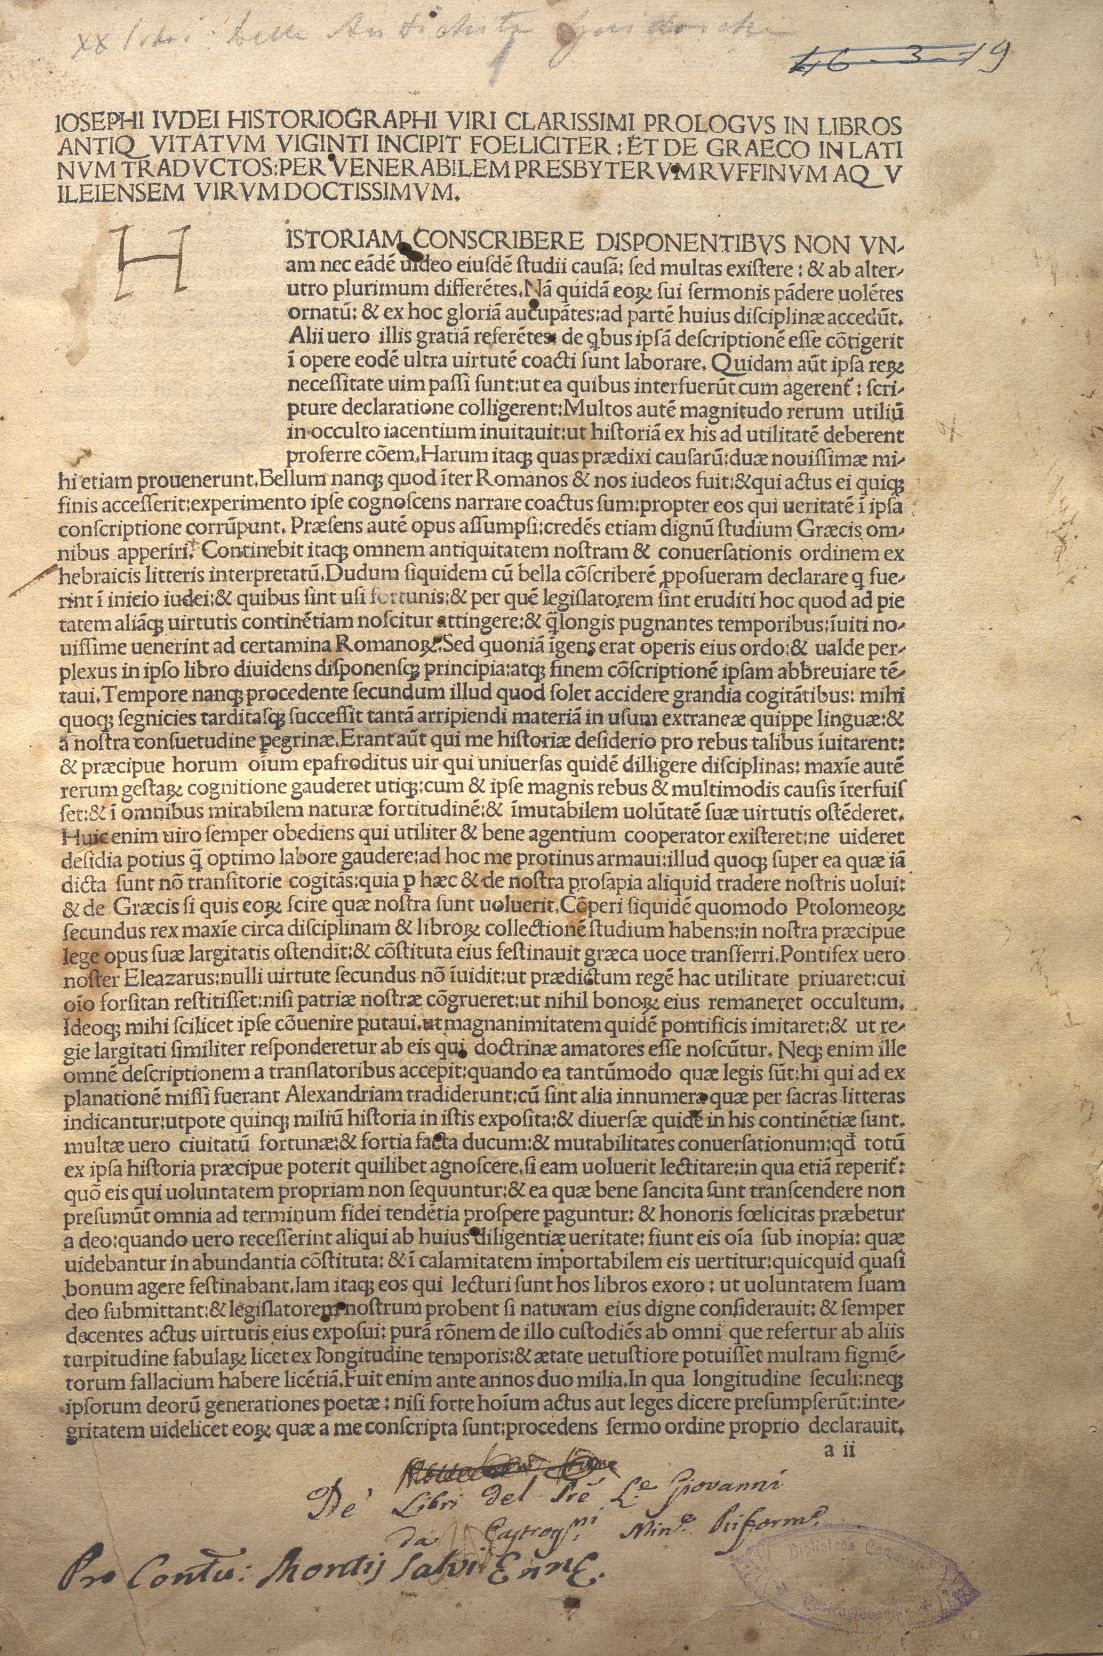 xx libri della Antichita
46-3-19
IOSEPHI IVDEI HISTORIOGRAPHI VIRI CLARISSIMI PROLOGVS IN LIBROS
ANTIQVITATVM VIGINTI INCIPIT FOELICITER: ET DE GRAECO IN LATI
NVM TRADVCTOS: PER VENERABILEM PRESBYTERVM RVFFINVM AQV
ILEIENSEM VIRVM DOCTISSIMVM.
H
ISTORIAM CONSCRIBERE DISPONENTIBVS NON VN-
am nec eādē uideo eiusdē studii causā: sed multas existere: & ab alter-
utro plurimum differētes. Nā quidā eoꝝ sui sermonis pādere uolētes
ornatū: & ex hoc gloriā aucupātes: ad partē huius disciplinæ accedūt.
Alii uero illis gratiā referētes: de qbus ipsā descriptionē esse cōtigerit
ī opere eodē ultra uirtutē coacti sunt laborare. Quidam aūt ipsa reꝝ
necessitate uim passi sunt: ut ea quibus interfuerūt cum agerent̄: scri-
pture declaratione colligerent: Multos autē magnitudo rerum utiliū
in occulto iacentium inuitauit: ut historiā ex his ad utilitatē deberent
proferre cōem. Harum itaq; quas prædixi causarū: duæ nouissimæ mi-
hi etiam prouenerunt. Bellum nanq; quod īter Romanos & nos iudeos fuit: & qui actus ei quiq;
finis accesserit: experimento ipse cognoscens narrare coactus sum: propter eos qui ueritatē ī ipsa
conscriptione corrūpunt. Præsens autē opus assūmpsi: credēs etiam dignū studium Græcis om-
nibus apperiri. Continebit itaq; omnem antiquitatem nostram & conuersationis ordinem ex
hebraicis litteris interpretatū. Dudum siquidem cū bella cōscriberē ꝓposueram declarare q fue-
rint ī inicio iudei: & quibus sint usi fortunis: & per quē legislatorem sint eruditi hoc quod ad pie
tatem aliāq; uirtutis continētiam noscitur attingere: & q̄ longis pugnantes temporibus: īuiti no-
uissime uenerint ad certamina Romanoꝝ. Sed quoniā īgens erat operis eius ordo: & ualde per-
plexus in ipso libro diuidens disponensq; principia: atq; finem cōscriptionē ipsam abbreuiare tē-
taui. Tempore nanq; procedente secundum illud quod solet accidere grandia cogitātibus: mihi
quoq; segnicies tarditasq; successit tantā arripiendi materiā in usum extraneæ quippe linguæ: &
a nostra consuetudine ꝑegrinæ. Erant aūt qui me historiæ desiderio pro rebus talibus īuitarent:
& præcipue horum oīum epafroditus uir qui uniuersas quidē dilligere disciplinas: maxīe autē
rerum gestaꝝ cognitione gauderet utiq;: cum & ipse magnis rebus & multimodis causis īterfuis
set: & ī omnibus mirabilem naturæ fortitudinē: & īmutabilem uolūtatē suæ uirtutis ostēderet.
Huic enim uiro semper obediens qui utiliter & bene agentium cooperator existeret: ne uideret
desidia potius q̄ optimo labore gaudere: ad hoc me protinus armaui: illud quoq; super ea quæ iā
dicta sunt nō transitorie cogitās: quia ꝑ hæc & de nostra prosapia aliquid tradere nostris uolui:
& de Græcis si quis eoꝝ scire quæ nostra sunt uoluerit. Cōperi siquidē quomodo Ptolomeoꝝ
secundus rex maxīe circa disciplinam & libroꝝ collectionē studium habens: in nostra præcipue
lege opus suæ largitatis ostendit: & cōstituta eius festinauit græca uoce transferri. Pontifex uero
noster Eleazarus: nulli uirtute secundus nō īuidit: ut prædictum regē hac utilitate priuaret: cui
oīo forsitan restitisset: nisi patriæ nostræ cōgrueret: ut nihil bonoꝝ eius remaneret occultum.
Ideoq; mihi scilicet ipse cōuenire putaui. ut magnanimitatem quidē pontificis imitaret: & ut re-
gie largitati similiter responderetur ab eis qui doctrinæ amatores esse noscūtur. Neq; enim ille
omnē descriptionem a translatoribus accepit: quando ea tantūmodo quæ legis sūt: hi qui ad ex
planationē missi fuerant Alexandriam tradiderunt: cū sint alia innumera quæ per sacras litteras
indicantur: utpote quinq; miliū historia in istis exposita: & diuersæ quidē in his continētiæ sunt.
multæ uero ciuitatū fortunæ: & fortia facta ducum: & mutabilitates conuersationum: qd̄ totū
ex ipsa historia præcipue poterit quilibet agnoscere. si eam uoluerit lectitare: in qua etiā reperit̄:
quō eis qui uoluntatem propriam non sequuntur: & ea quæ bene sancita sunt transcendere non
presumūt omnia ad terminum fidei tendētia prospere paguntur: & honoris fœlicitas præbetur
a deo: quando uero recesserint aliqui ab huius diligentiæ ueritate: fiunt eis oīa sub inopia: quæ
uidebantur in abundantia cōstituta: & ī calamitatem importabilem eis uertitur: quicquid quasi
bonum agere festinabant. Iam itaq; eos qui lecturi sunt hos libros exoro: ut uoluntatem suam
deo submittant: & legislatorem nostrum probent si naturam eius digne considerauit: & semper
decentes actus uirtutis eius exposui: purā rōnem de illo custodiēs ab omni que refertur ab aliis
turpitudine fabulaꝝ licet ex longitudine temporis: & ætate uetustiore potuisset multam figmē-
torum fallacium habere licētiā. Fuit enim ante annos duo milia. In qua longitudine seculi: neq;
ipsorum deorū generationes poetæ: nisi forte hoīum actus aut leges dicere presumpserūt: inte-
gritatem uidelicet eoꝝ quæ a me conscripta sunt: procedens sermo ordine proprio declarauit.
a ii
De' Libri del Pre Le Giovanni
da Castrogni Mine Riforme
Pro Contu: Montis Salvi Ennę.
Biblioteca Comunale
Castrogiovanni